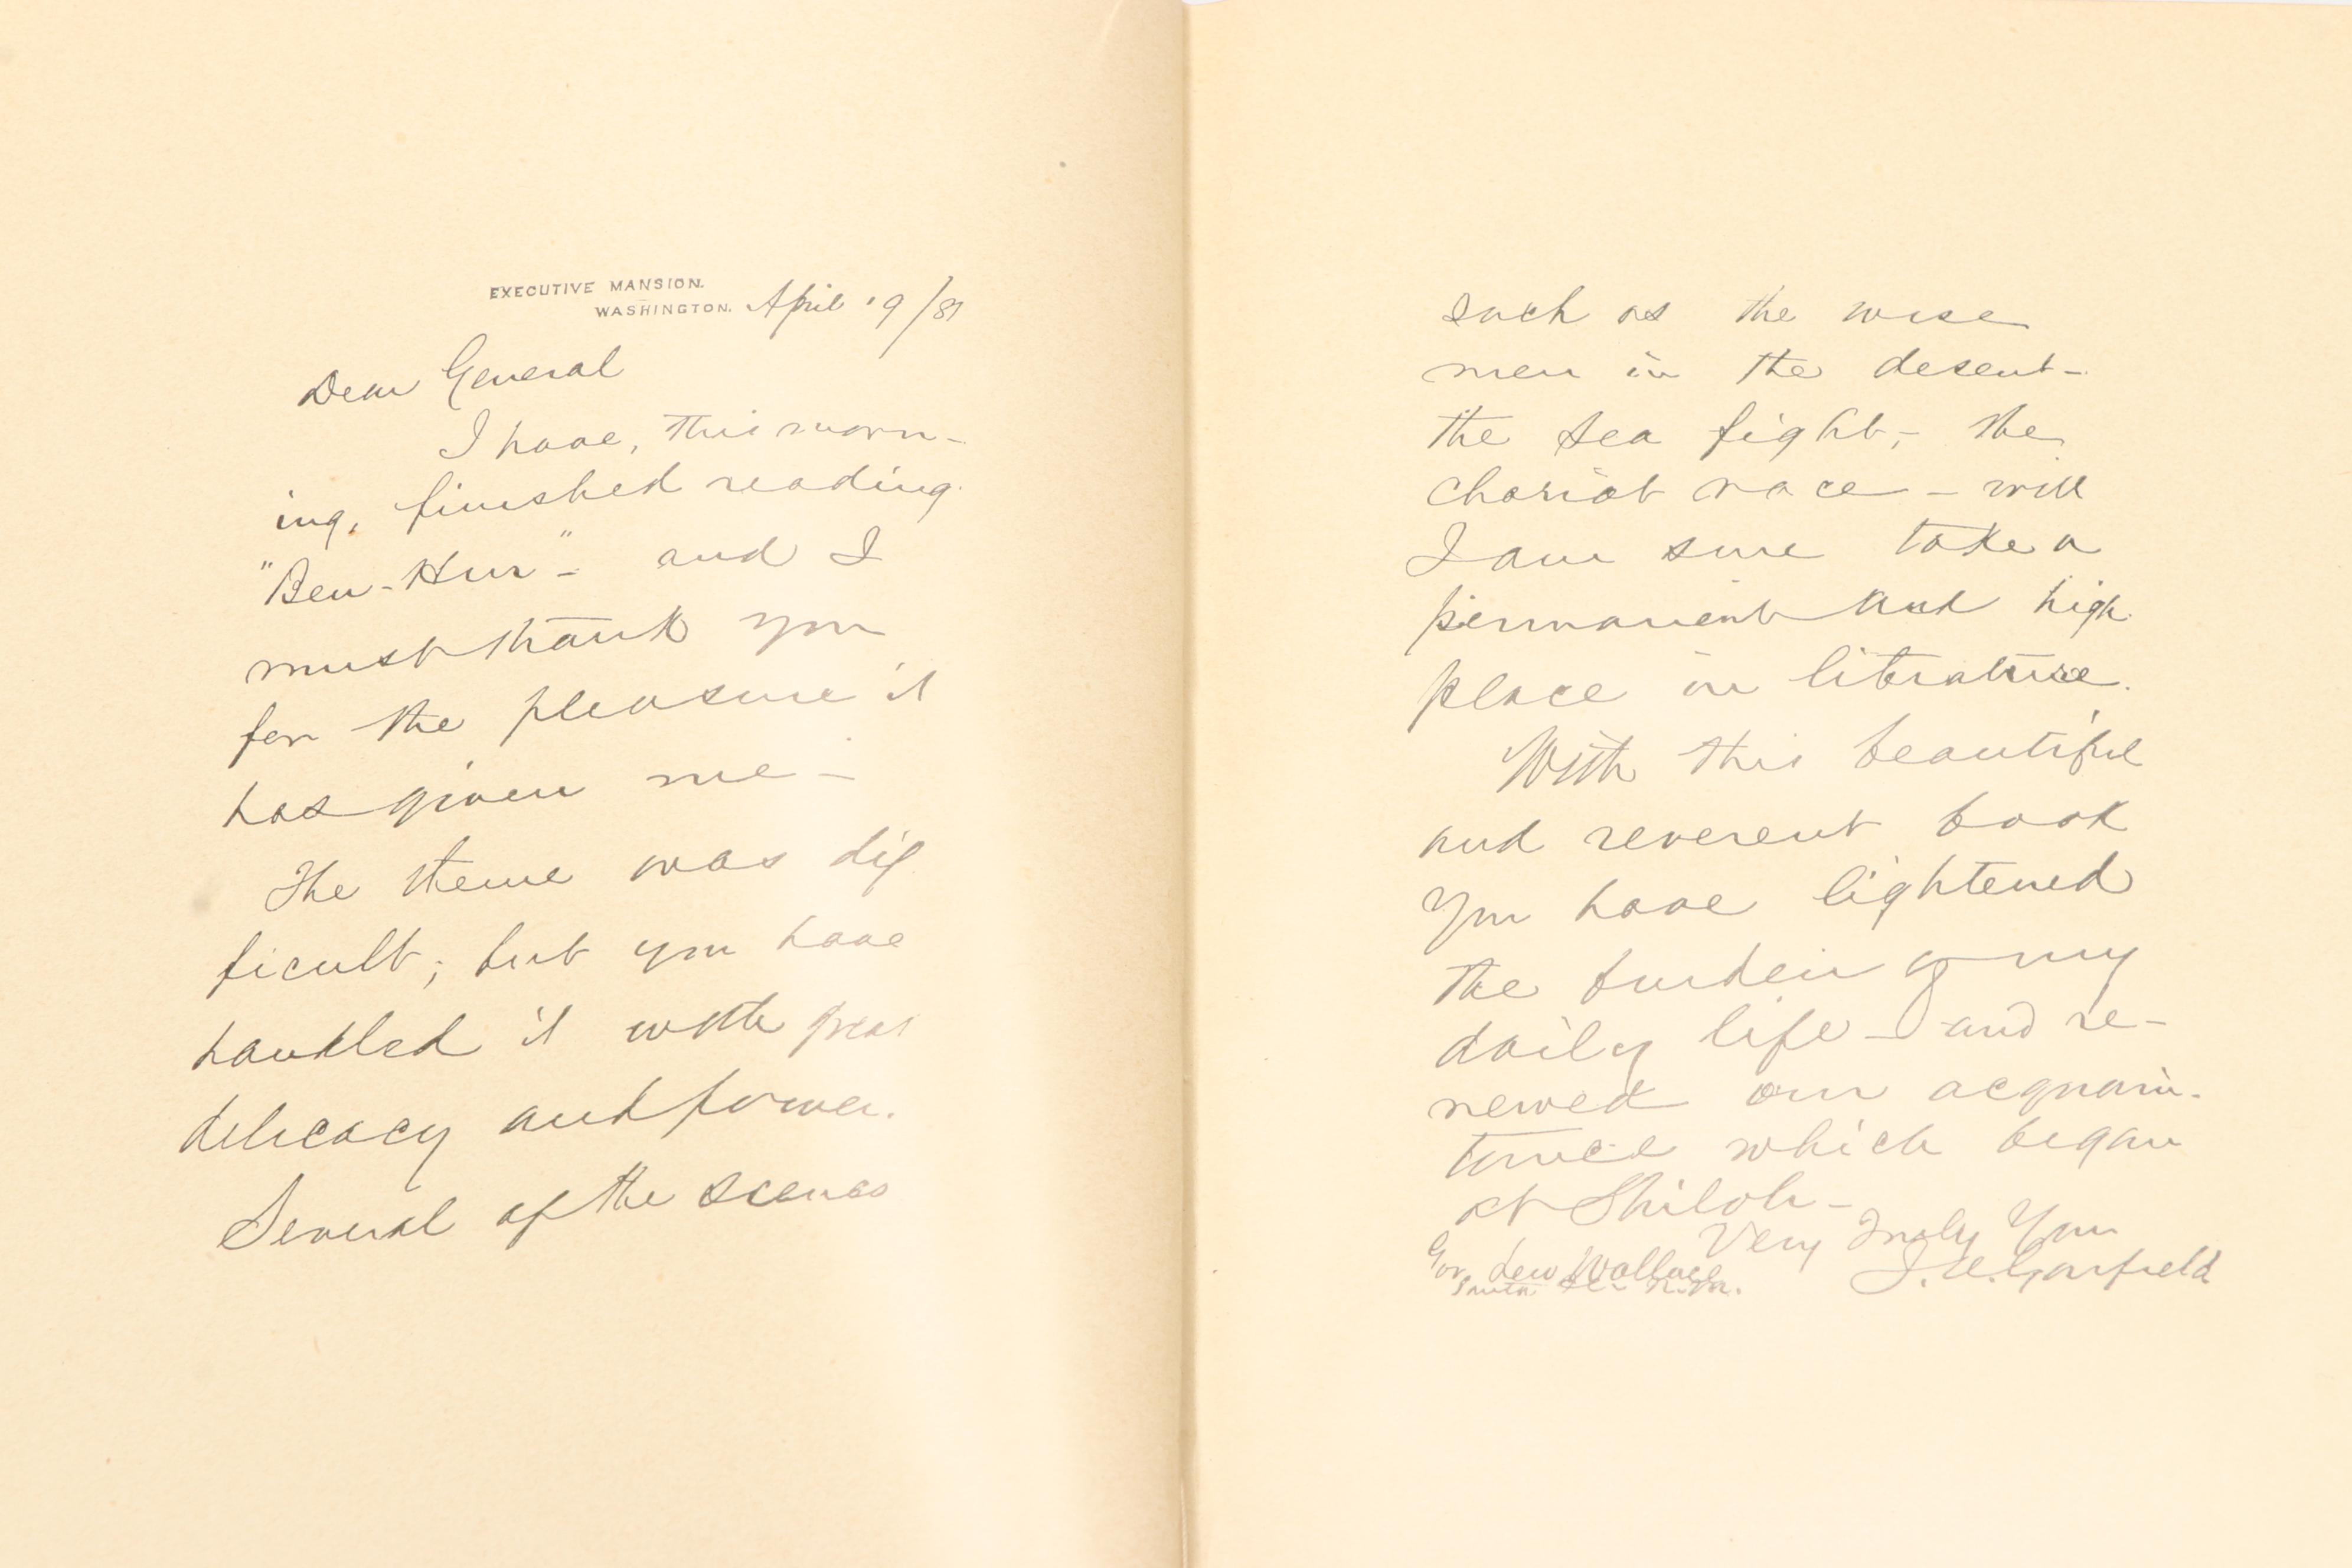 EXECUTIVE MANSION.
WASHINGTON. April 19/81
Dear General
I have, this morn-
ing, finished reading
"Ben-Hur" - and I
must thank you
for the pleasure it
has given me -
The theme was dif
ficult; but you have
handled it with great
delicacy and power.
Several of the scenes
such as the wise
men in the desert -
the sea fight, - the
chariot race - will
I am sure take a
permanent and high
place in literature.
With this beautiful
and reverent book
you have lightened
the burden of my
daily life - and re-
newed our acquain-
tance which began
at Shiloh -
Very Truly Yours
J.A. Garfield
Gov. Lew Wallace
Santa Fe